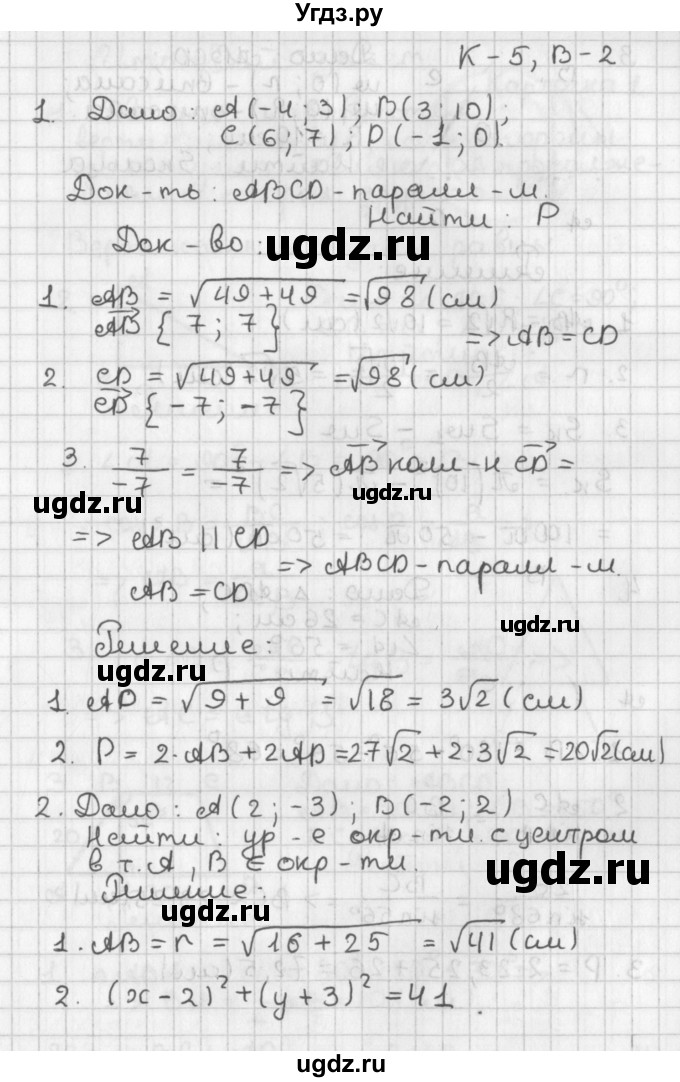 Угдз.ру
К-5, В-2
1. Дано: А(-4; 3); В(3; 10);
С(6; 7); D(-1; 0).
Док-ть: ABCD-паралл-м.
Найти: Р
Док-во:
ugdz.ru
1. AB = √49+49 = √98 (см)
AB {7; 7}
=> AB = CD
2. CD = √49+49 = √98 (см)
CD {-7; -7}
3. 7/-7 = 7/-7 => AB колл-н CD =
ugdz.ru
ugdz.ru
=> AB || CD
=> ABCD-паралл-м.
AB = CD
ugdz.ru
Решение:
ugdz.ru
1. AD = √9+9 = √18 = 3√2 (см)
2. P = 2·AB+2AD=2·7√2+2·3√2=20√2(см)
2. Дано: А(2; -3); В(-2; 2)
Найти: ур-е окр-ти с центром
в т.А, В ∈ окр-ти.
ugdz.ru
Решение:
ugdz.ru
1. AB = r = √16+25 = √41 (см)
2. (x-2)²+(y+3)²=41.
ugdz.ru